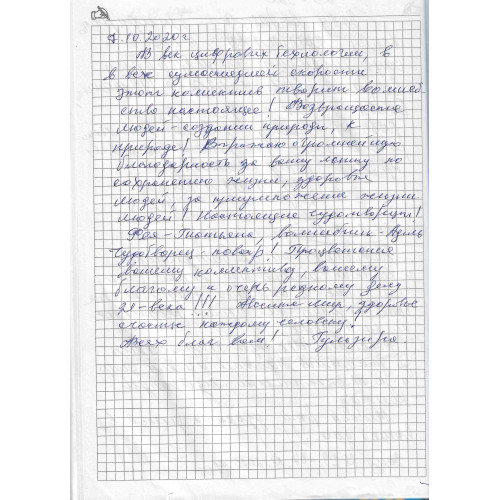 7.10.2020г
В век цифровых технологии, в
в век сумасшедшей скорости
этот коллектив творит волшеб
ство настоящее! Возвращаете
людей - создании природы, к
природе! Выражаю огромнейшую
благодарность за вашу заботу по
сохранению жизни, здоровья
людей, за приумножения жизни
людей! Настоящие чудотворцы!
Фея - Татьяна, волшебник - Адель
Чудотворец - повар! Процветания
вашему коллективу, вашему
благому и очень редкому делу
21-века!!! здоровье
счастье каждому человеку!
Всех благ вам! Гульзира